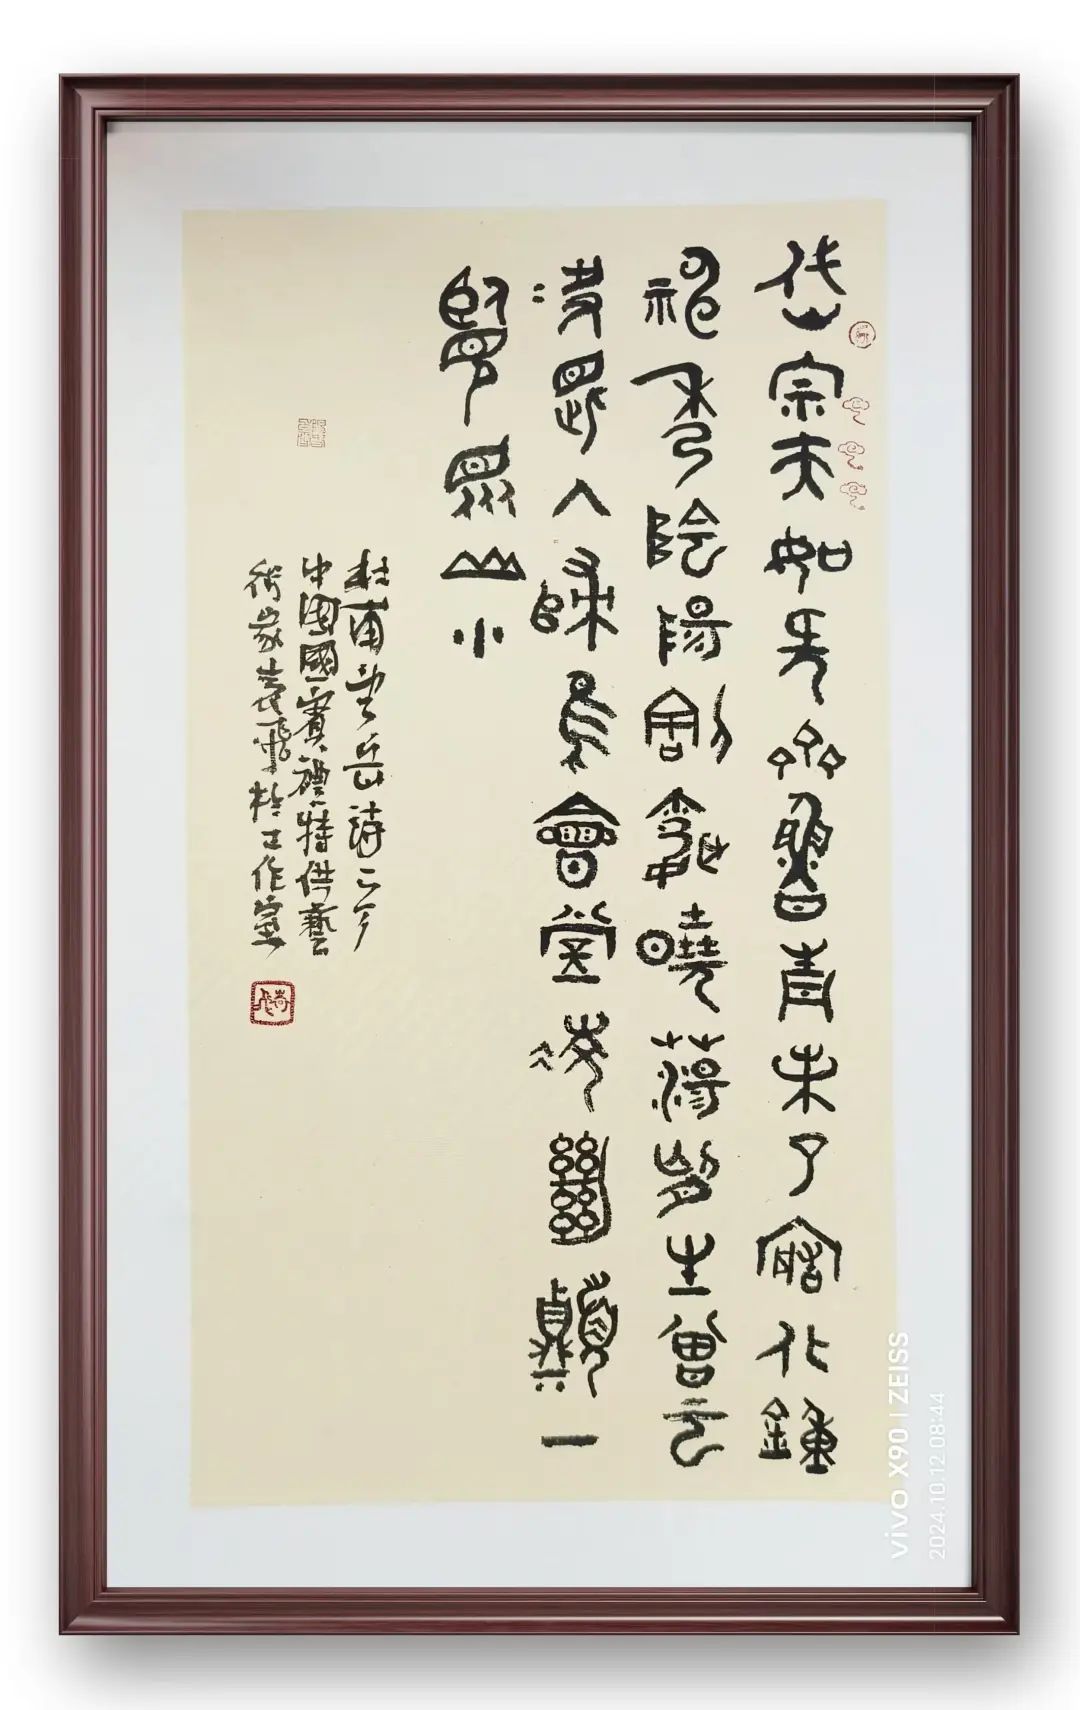 岱宗夫如何齊魯青未了造化鍾
神秀陰陽割昏曉蕩胸生曾雲
決眥入歸鳥會當凌絕頂一
覽眾山小
杜甫望岳詩一首
中國國賓禮特供藝
術家袁飛於工作室
vivo X90 | ZEISS
2024.10.12 08:44